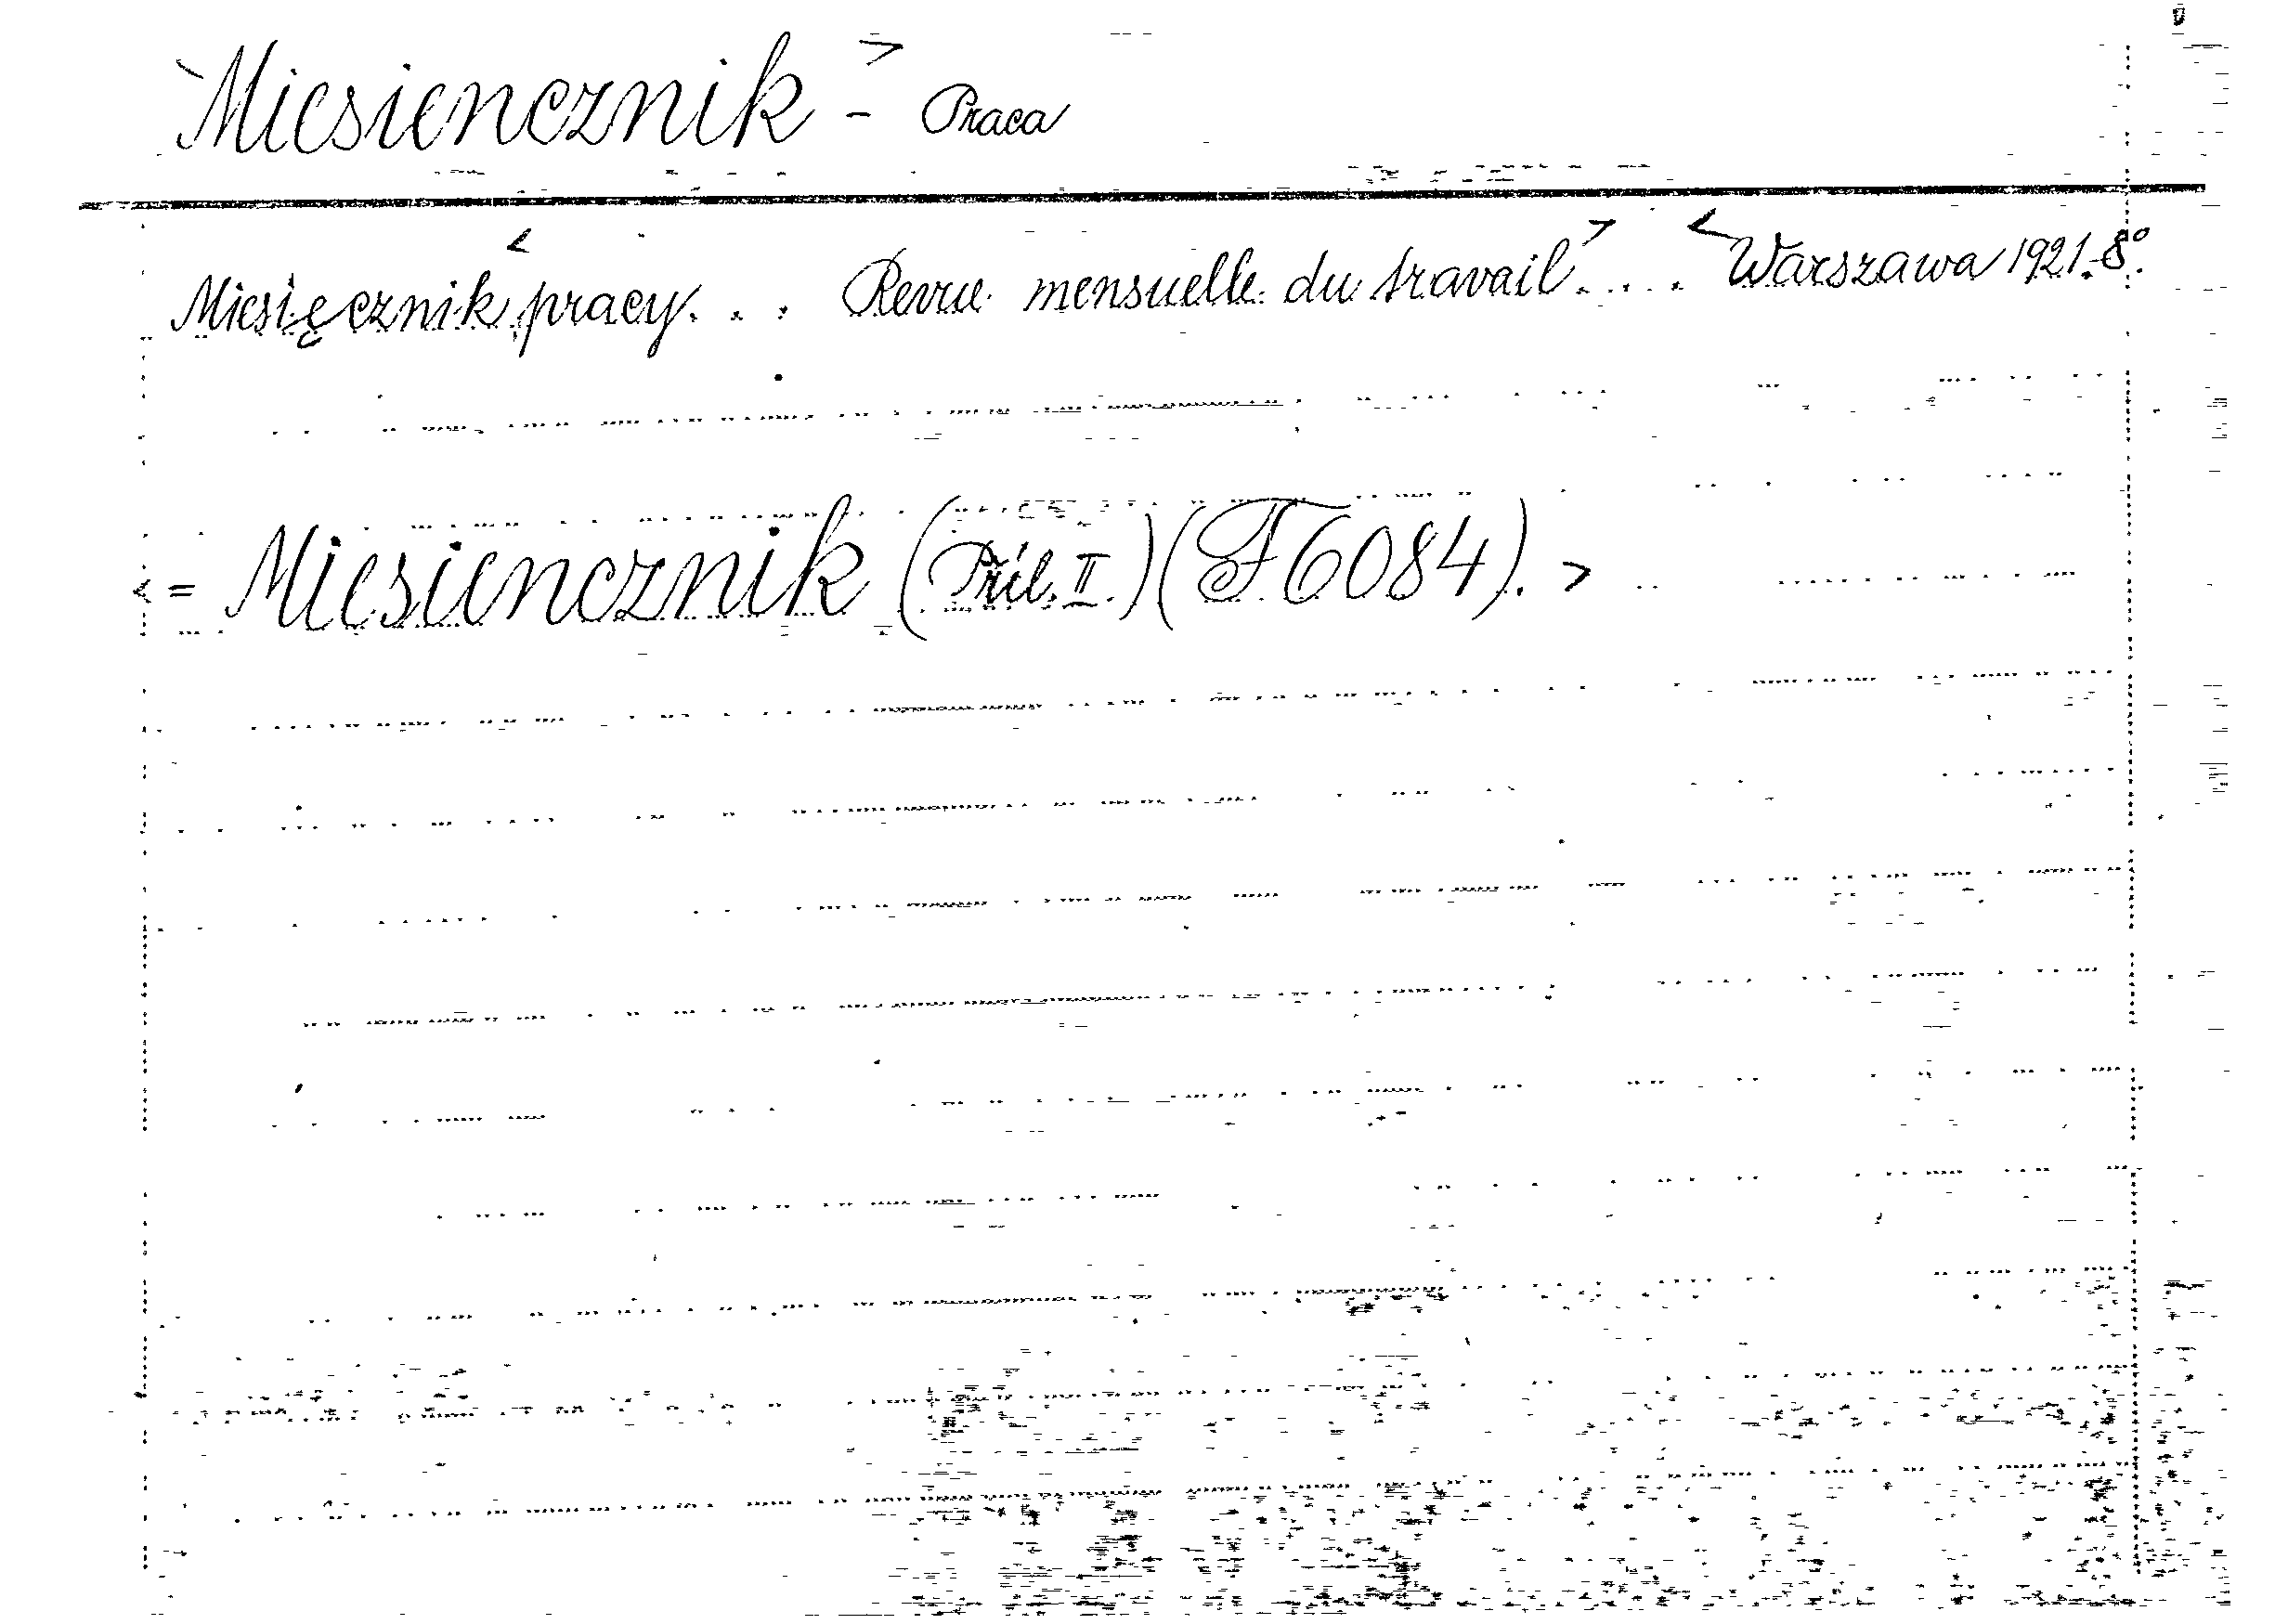 Miesiencznik > - Praca
Miesięcznik < pracy. . . Revue mensuelle du travail > . . . . < Warszawa 1921.-8º.
< = Miesiencznik (Příl. II.) (F 6084). >